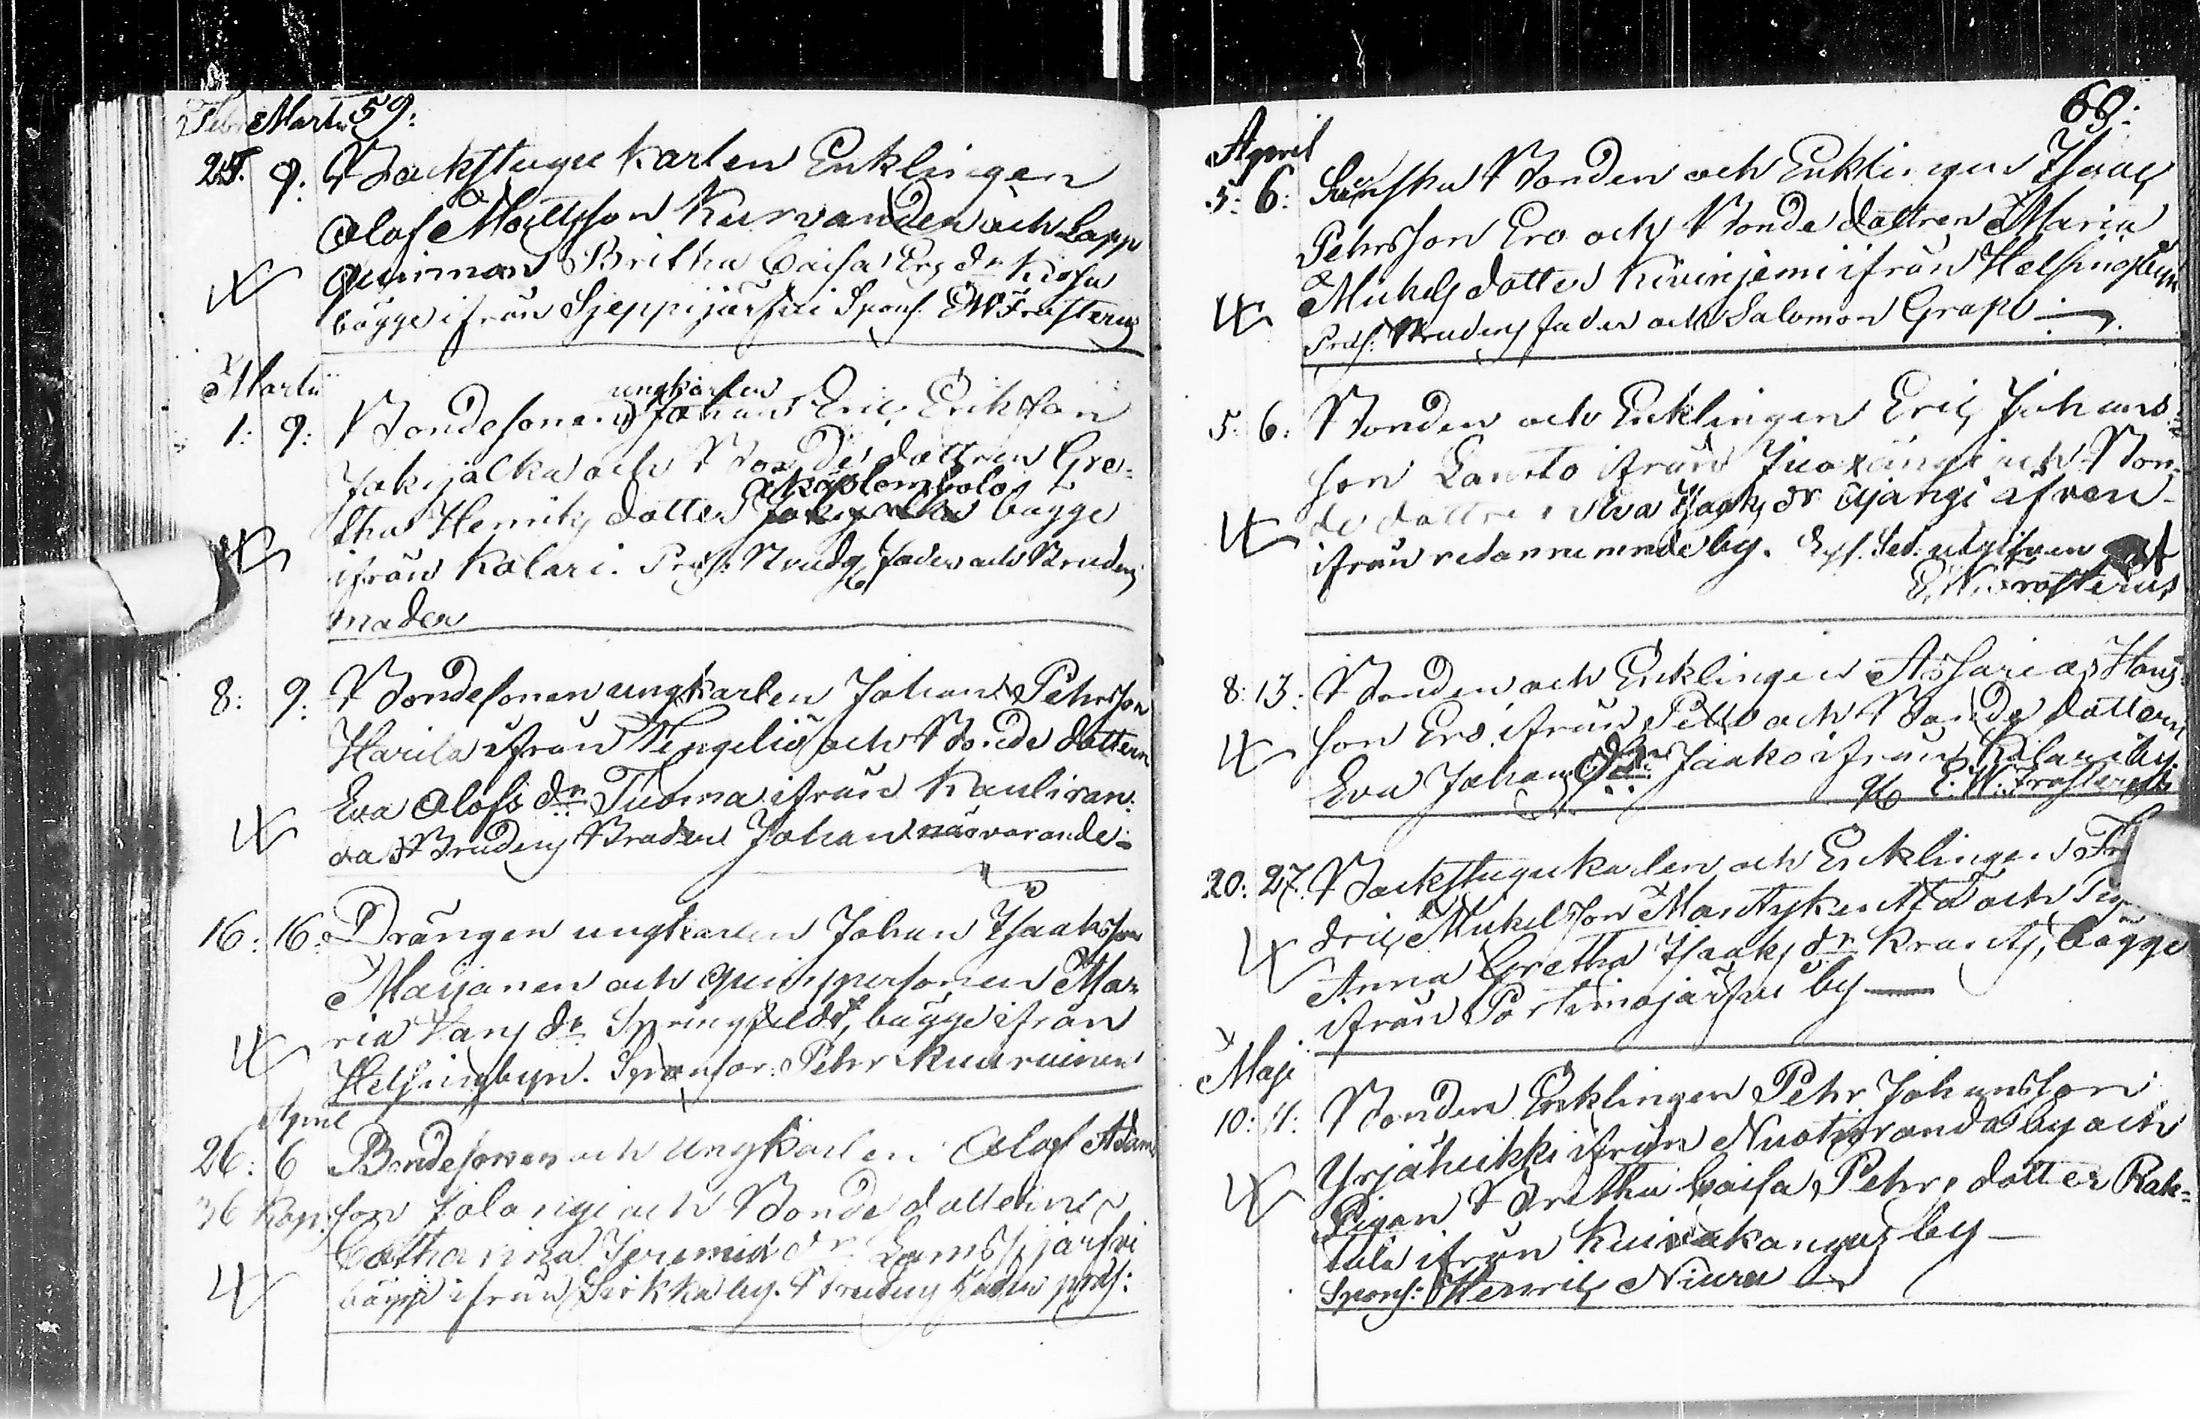 Feb. Martii 59:
25. 9: Backstugu karlen Enklingen
Olof Mattsson Kurvanden och Lapp
quinnan Britha Caisa Ers dr Kosu
bägge ifrån Sjeppijärfvi Spons: EWFrosterus
Martii
ungkarlen
1: 9: Bondesonen Johan Eric Erikson
Jokijalka och Bonde dottren Gre-
Äkäslombolo
tha Henriks dotter Jokijalka bägge
ifrån Kolari. Pres: Brudgs fader och Brudens
moder
8: 9: Bondesonen ungkarlen Johan Pehrsson
Harila ifrån Tengeliö och Bonde dottern
Eva Olofs dr Tuoma ifrån Kauliran-
da Brudens Broder Johan närvarande
16: 16: Drängen ungkarlen Johan Isaaksson
Marjanen och quinspersonen Ma-
ria Lars dr Springfeldt, bägge ifrån
Helsingbyn. Sponsor: Pehr Kuuruinen
April
26: 6 Bondesonen och ungkarlen Olof Adams
36 Kop: son Jolangi och Bonde dotteren
Catharina Jeremiæ dr Lamsijärfvi
bägge ifrån Sirkka by. Brudens fader pres:
69:
April
5: 6: Bonden och Enklingen Isaac
Pehrsson Ero och Bonde dottren Maria
Michels dotter Kivinjemi ifrån Helsingbyn
Pres: Brudens fader och Salomon Grape
5: 6: Bonden och Enklingen Eric Johans-
son Lansto ifrån Juoxängi och Bon-
de dottren Eva Isaks dr Äjängi äfven
ifrån redannemnde by. utgifven af
E.W. Frosterus
8: 13: Bonden och Enklingen Assarias Hans-
son Ero ifrån Pello och Bonde dottern
Eva Johans dr Jaako ifrån Kolari by.
E: W: Frosterus
20: 27: Backstugukarlen och Enklingen Fre
dric Mickelsson Mantykentta och Pig
Anna Gretha Isaaks dr Krants, bägge
ifrån Portimojärfvi by
Maji
10: 11: Bonden Enklingen Pehr Johansson
Yrjäheikki ifrån Nuotioranda by och
Pigan Bretha Caisa Pehrs dotter Rah-
tula ifrån Kuivakangas by
Spons: Henric Niura